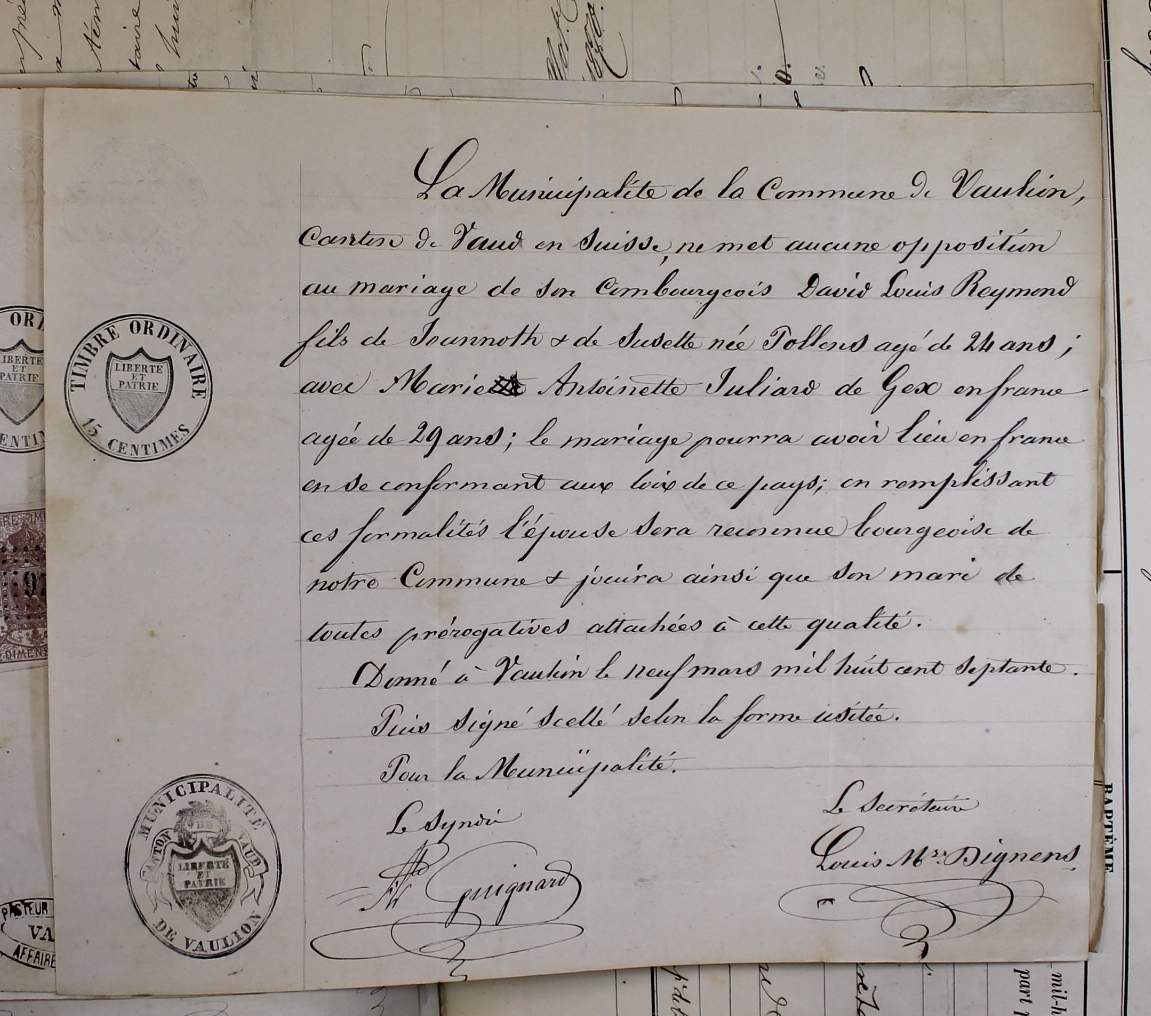 La Municipalité de la Commune de Vaulion,
Canton de Vaud en Suisse, ne met aucune opposition
au mariage de son Combourgeois David Louis Reymond
fils de Jeannoth & de Susette née Tollens agé de 24 ans ;
avec Marie Antoinette Juliard de Gex en france
agée de 29 ans ; le mariage pourra avoir lieu en france
en se conformant aux loix de ce pays ; en remplissant
ces formalités l'épouse sera reconnue bourgeoise de
notre Commune & jouira ainsi que son mari de
toutes prérogatives attachées à cette qualité.
Donné à Vaulion le neuf mars mil huit cent septante.
Puis signé scellé selon la forme usitée.
Pour la Municipalité.
Le Syndic
Guignard
Le Secrétaire
Louis Mce. Bignens
TIMBRE ORDINAIRE
LIBERTE
ET
PATRIE
15 CENTIMES
MUNICIPALITÉ
DE
CANTON VAUD
LIBERTE
ET
PATRIE
DE VAULION
LIBERTE
ET
PATRIE
PASTEUR
VA
AFFAIRE
BAPTÊME
mil-h